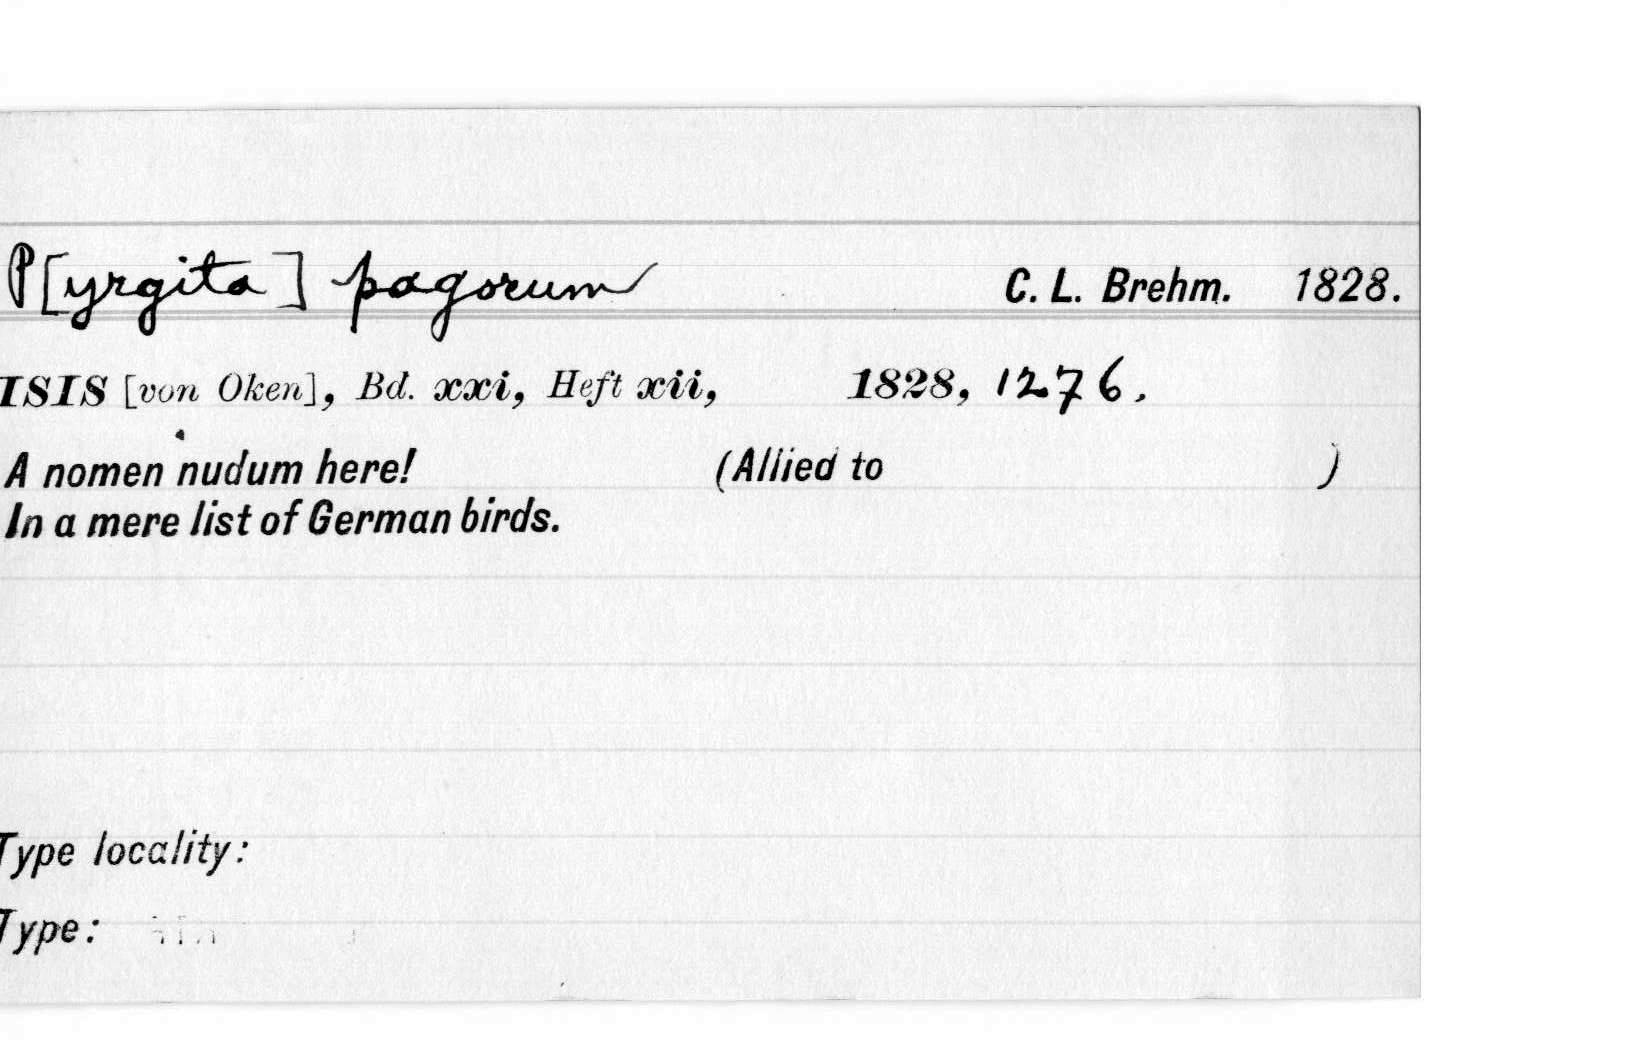 P[yrgita] pagorum C. L. Brehm. 1828.
ISIS [von Oken], Bd. xxi, Heft xii, 1828, 1276.
A nomen nudum here! (Allied to )
In a mere list of German birds.
Type locality:
Type: